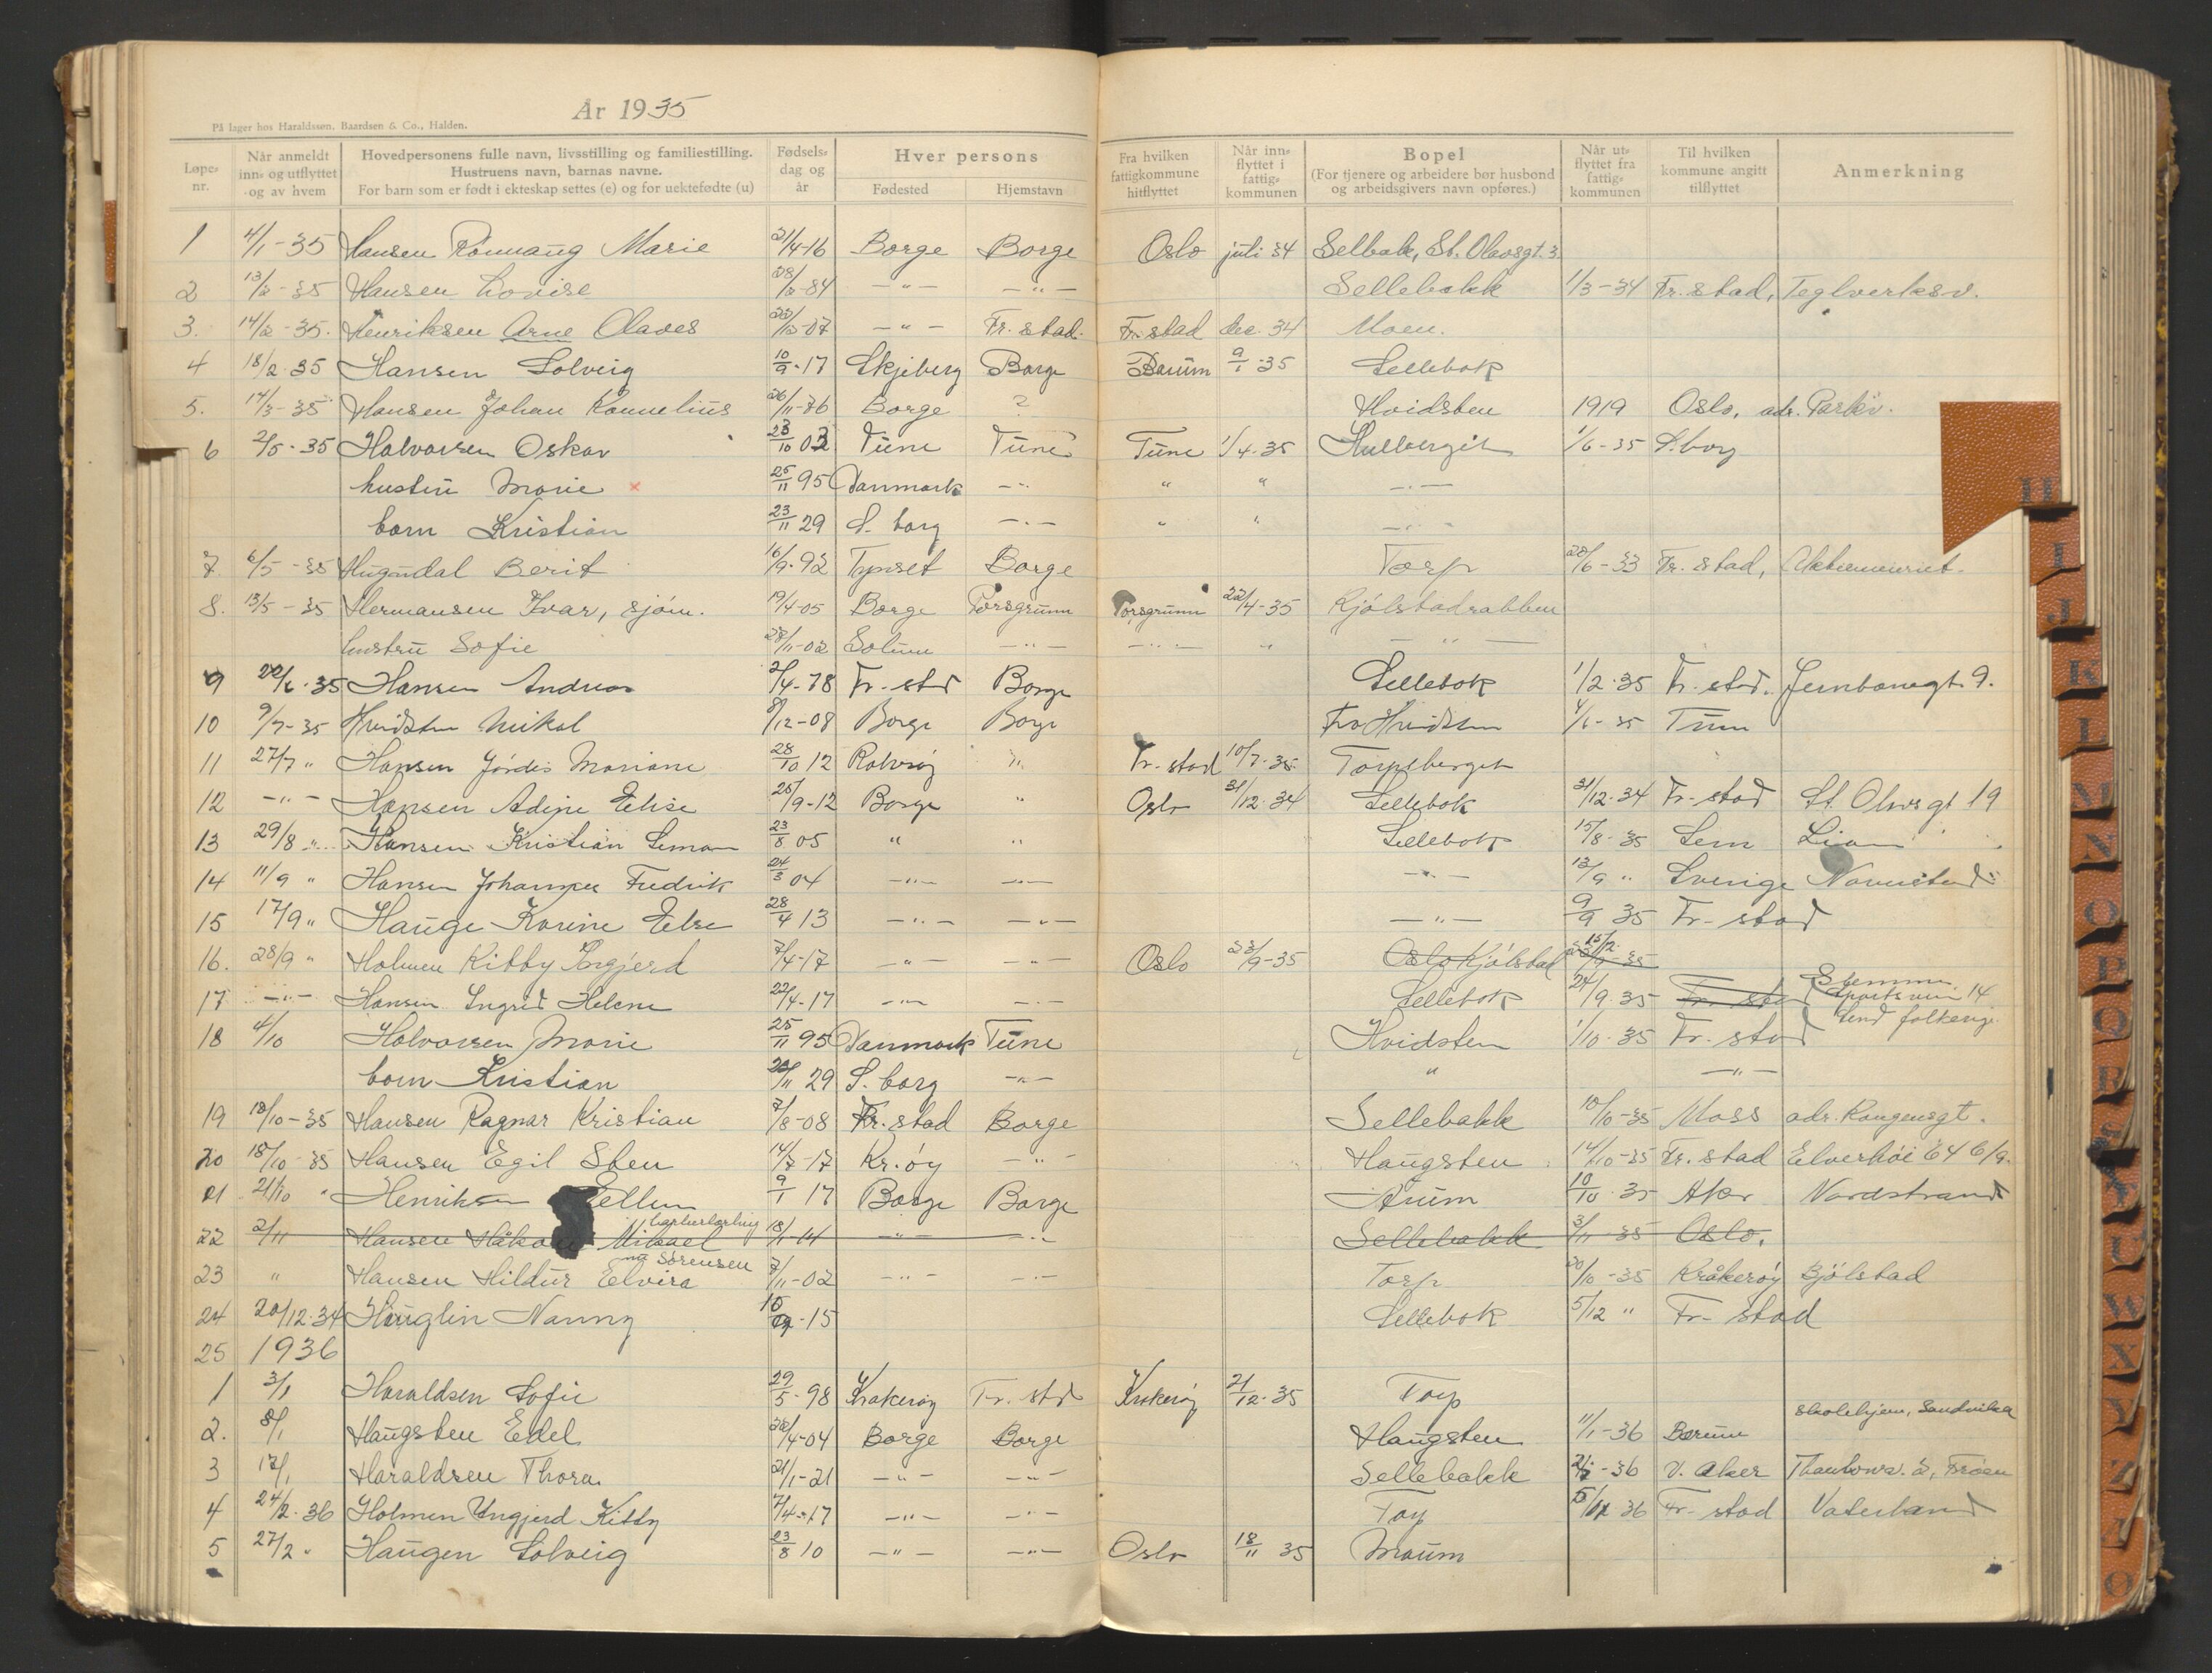 År 1935
På lager hos Haraldssøn, Baardsen & Co., Halden.
Løpenr. Når anmeldt inn- og utflyttet og av hvem Hovedpersonens fulle navn, livsstilling og familiestilling. Hustruens navn, barnas navne. For barn som er født i ekteskap settes (e) og for uektefødte (u) Fødselsdag og år Hver persons Fødested Hjemstavn Fra hvilken fattigkommune hitflyttet Når innflyttet i fattigkommunen Bopel (For tjenere og arbeidere bør husbond og arbeidsgivers navn opføres.) Når utflyttet fra fattigkommunen Til hvilken kommune angitt tilflyttet Anmerkning
1 4/1-35 Hansen Rönnaug Marie 21/4-16 Borge Borge Oslo juli 34 Selbak, St. Olavsgt. 3.
2 13/2-35 Hansen Lovise 28/2-84 -"- -"- Sellebakk 1/3-34 Fr.stad, Teglverksv.
3. 14/2-35. Henriksen Arne Olaves -07 -"- Fr.stad. Fr.stad dec. 34 Moen.
4 18/2 35 Hansen Solveig 10/9-17 Skjeberg Borge Bærum 9/1-35 Sellebok
5. 14/3-35 Hansen Johan Kornelius 26/11-76 Borge ? Hvidsten 1919 Oslo, adr. Parkv.
6 2/5-35 Halvorsen Oskar 23/10 03 Tune Tune Tune 1/4-35 1/6-35 S.borg
hustru Marie × 25/11 95 Danmark -"- " " -"-
barn Kristian 23/11 29 S. borg -"- " " -"-
7 6/5-35 Haugdal Berit 16/9-92 Tynset Borge Torp 28/6-33 Fr.stad,
8. 13/5-35 Hermansen Ivar, sjøm. 19/4-05 Borge Porsgrunn Porsgrunn 22/4-35 Kjölstadrabben
hustru Sofie 28/11-02 Solum -"- -"- " -"-
9 22/6-35 Hansen Andreas 2/4-78 Fr.stad Borge Sellebok 1/2-35 Fr.stad. Jernbanegt 9.
10 9/7-35 Hvidsten Mikal 8/12-08 Borge Borge Hvidsten 4/6-35 Tune
11 27/7 " Hansen Jördis Mariane 28/10 12 Rolvsøy " Fr.stad 10/7-35 Torpeberget
12 -"- Hansen Elise 25/9-12 Borge " Oslo 31/12-34 Sellebok 31/12-34 Fr.stad St. Olavsgt 19
13 29/8 " Hansen Kristian 23/8 05 " " Sellebok 15/8-35 Sem
14 11/9 " Hansen Johannes Fredrik 24/3 04 -"- -"- -"- 13/9 " Sverige
15 17/9 " Hauge Karine Else 28/4 13 -"- -"- -"- 9/9 35 Fr-stad
16. 28/9 " Holmen Kitty Ingjerd 7/4-17 -"- -"- Oslo 23/9-35 Oslo Kjölstad
17 -"- Hansen Ingrid Helene 22/4-17 -"- -"- Sellebok 24/9-35 Fr.stad 14
18 4/10 Halvorsen Marie 25/11 95 Danmark Tune Hvidsten 1/10-35 Fr.stad
barn Kristian 23/11 29 S. borg -"- " -"-
19 18/10-35 Hansen Ragnar Kristian 7/8-08 Fr.stad Borge Sellebakk 10/10-35 Moss adr. Kongensgt.
20 18/10-35 Hansen Egil Sten 14/7-17 Kr.øy -"- Haugsten 14/10-35 Fr.stad Elverhöi
21 21/10 " Henriksen Ellen 9/1 17 Borge Borge Årum 10/10-35 Aker Nordstrand
22 2/11 Hansen Håkon Mikael 18/1-14 -"- -"- Sellebakk 3/11-35 Oslo.
23 " Hansen Hildur Elvira nå Sørensen 7/11-02 -"- -"- Torp 20/10-35 Kråkerøy Bjölstad
24 20/12-34 Hauglin Nanny 15 Sellebok 5/12 " Fr-stad
25 1936
1 3/1 Haraldsen Sofie 29/5-98 Krakerøy Fr.stad Krakerøy 21/12-35 Torp
2. 8/1 Haugsten Edel 28/4-04 Borge Borge Haugsten 11/1-36 Bærum skolehjem, Sandvika
3 17/1 Haraldsen Thora 21/1-21 -"- -"- Sellebakk -36 V. Aker
4 24/2-36 Holmen Ingjerd Kitty 7/4-17 -"- -"- Torp 36 Fr-stad Vaterland
5 27/2 " Haugen Solveig 23/8 10 -"- -"- Oslo 18/11 35 Moum